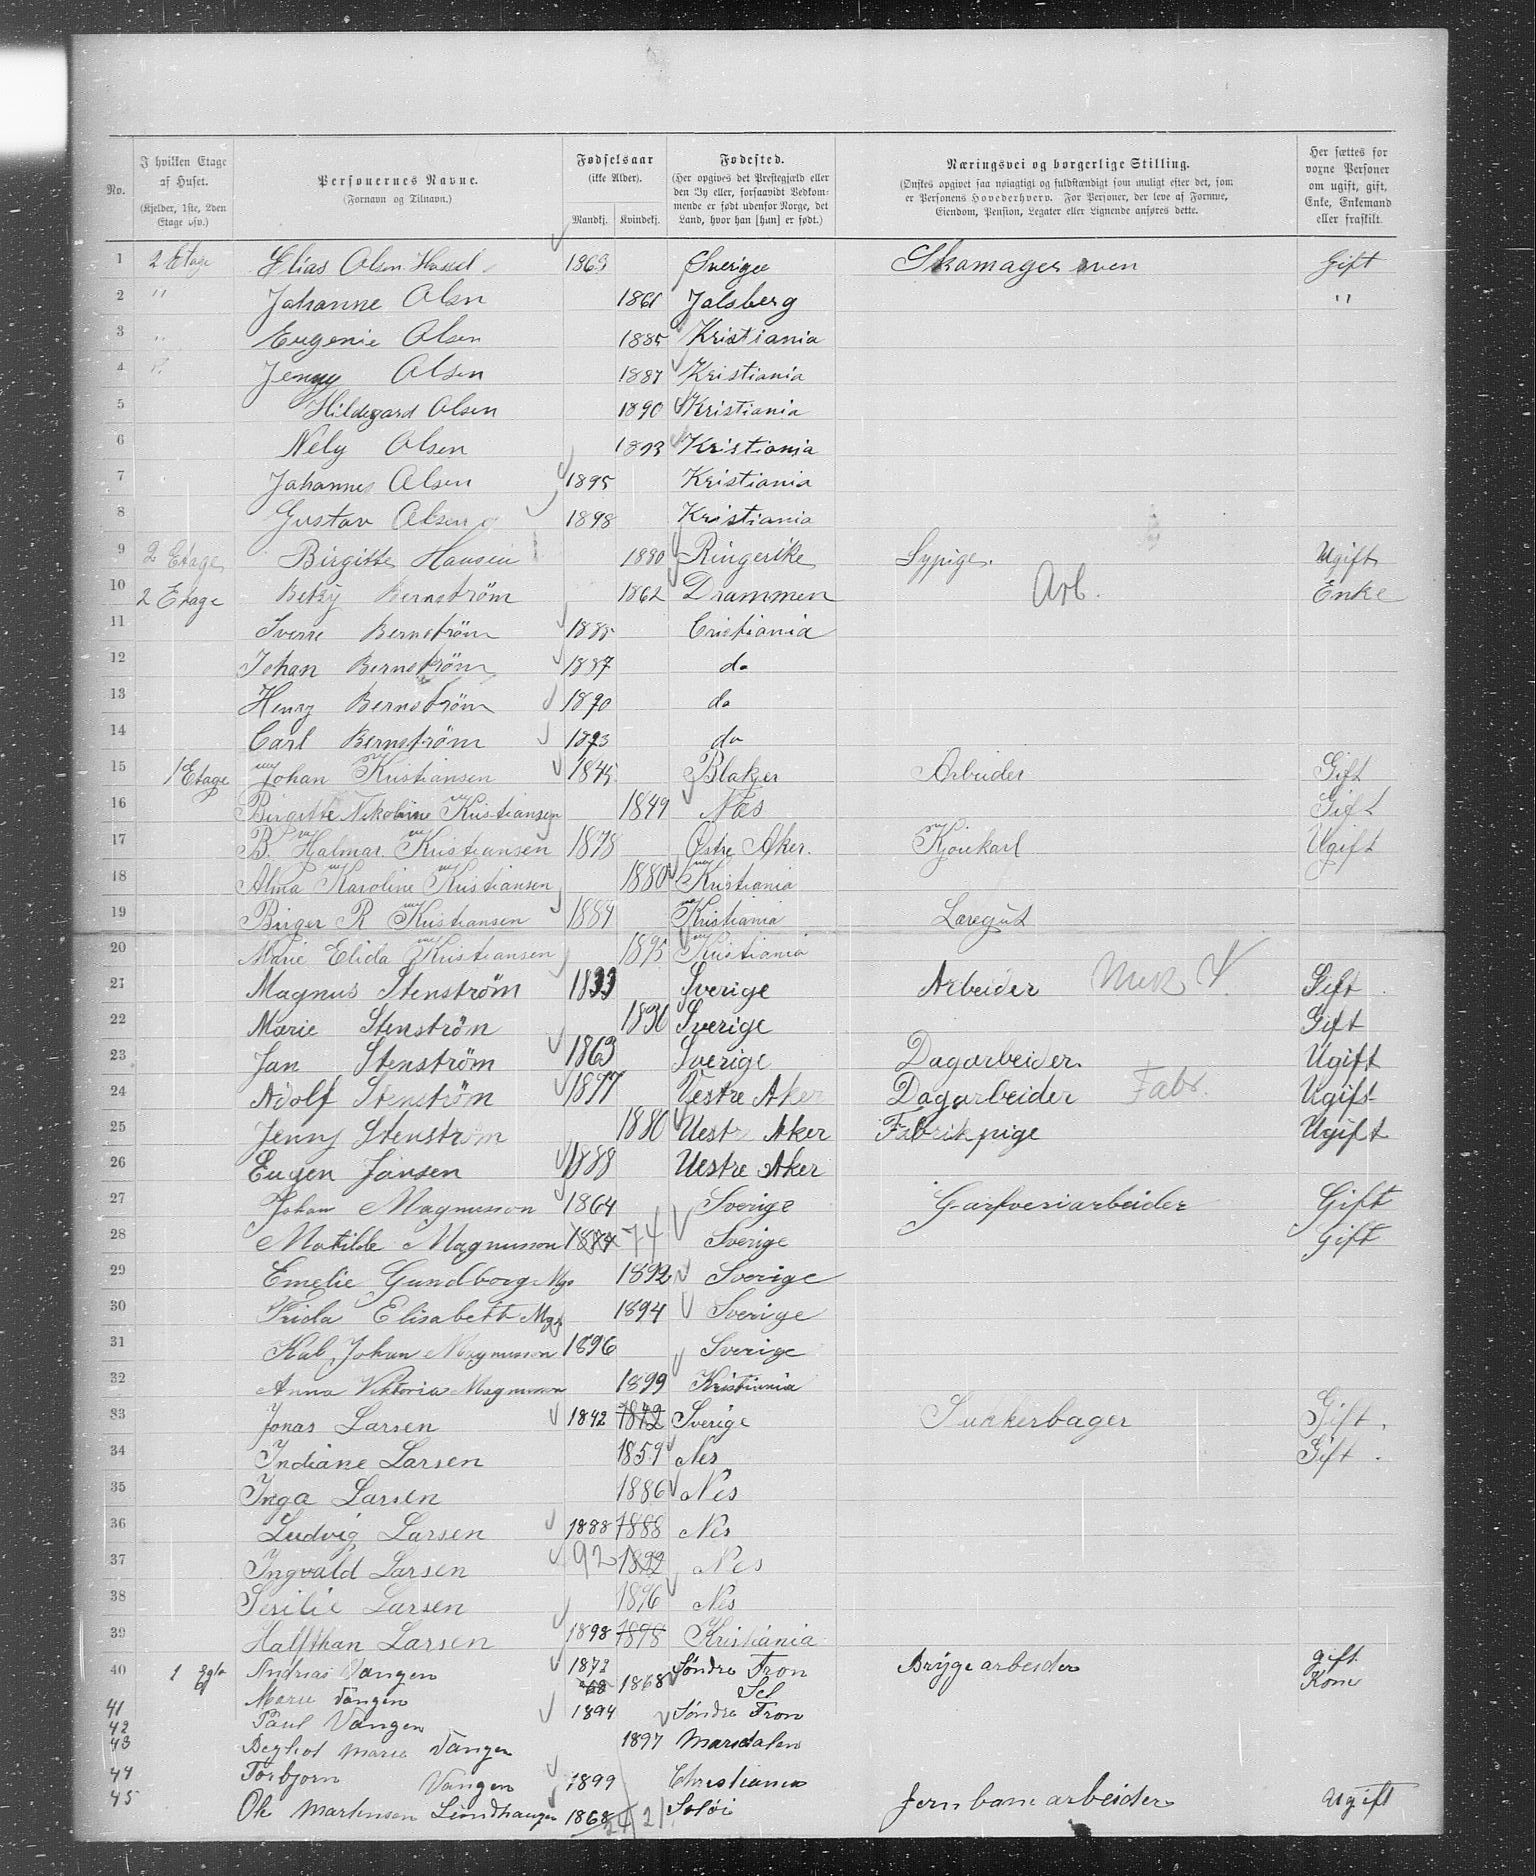 No.
I hvilken Etage af Huset.
(Kjelder, 1ste, 2den Etage osv.)
Personernes Navne.
(Fornavn og Tilnavn.)
Fødselsaar
(ikke Alder).
Mandkj. Kvindekj.
Fødested.
(Her opgives det Prestegjæld eller den By eller, forsaavidt Vedkommende er født udenfor Norge, det Land, hvor han [hun] er født.)
Næringsvei og borgerlige Stilling.
(Ønskes opgivet saa nøiagtigt og fuldstændigt som muligt efter det, som er Personens Hovederhverv. For Personer, der leve af Formue, Eiendom, Pension, Legater eller Lignende anføres dette.
Her sættes for voxne Personer om ugift, gift, Enke, Enkemand eller fraskilt.
1 2 Etage Elias Olsen 1863 Sverige Skomager sven Gift
2 " Johanne Olsn 1861 Jalsberg "
3 " Eugenie Olsen 1885 Kristiania
4 " Jenny Olsen 1887 Kristiania
5 Hildegard Olsen 1890 Kristiania
6 Nely Olsen 1893 Kristiania
7 Johannes Olsen 1895 Kristiania
8 Gustav Olsen 1898 Kristiania
9 2 Etage Birgitte Hansen 1880 Ringerike Sypige. Ugift
10 2 Etage Betsy Bernström 1862 Drammen Arb. Enke
11 Sverre Bernström 1885 Cristiania
12 Johan Bernström 1887 do
13 Henry Bernström 1890 do
14 Carl Bernström 1893 do
15 1 Etage Johan Kristiansen 1845 Blaker Arbeider Gift
16 Birgitte Nikoline Kristiansen 1849 Næs Gift
17 B. Halmar Kristiansen 1878 Østre Aker. Kjørekarl Ugift
18 Alma Karoline Kristiansen 1880 Kristiania
19 Birger R Kristiansen 1884 Kristiania Laregut
20 Marie Elida Kristiansen 1895 Kristiania
21 Magnus Stenström 1833 Sverige Arbeider Mek V. Gift
22 Marie Stenström 1830 Sverige Gift
23 Jan Stenström 1863 Sverige Dagarbeider. Ugift
24 Adolf Stenström 1877 Vestre Aker Dagarbeider Fabr. Ugift
25 Jenny Stenström 1880 Uestre Aker Fabrikpige Ugift
26 Eugen Jansen 1888 Uestre Aker
27 Johan Magnusson 1864 Sverige Garfveriarbeider Gift
28 Matilde Magnusson 1874 74 Sverige Gift
29 Emelie Gundborg Mgs 1892 Sverige
30 Frida Elisabett Mgs 1894 Sverige
31 Kal Johan Magnusson 1896 Sverige
32 Anna Viktoria Magnusson 1899 Kristiania
33 Jonas Larsen 1842 1842 Sverige Sukkerbager Gift.
34 Indiane Larsen 1859 Nes Gift.
35 Inga Larsen 1886 Nes
36 Ludvig Larsen 1888 1888 Nes
37 Ingvald Larsen 92 1892 Nes
38 Sesilie Larsen 1896 Nes
39 Halfthan Larsen 1898 1898 Kristiania
40 1 Etg Andreas Vangen 1872 Søndre Fron Bryge arbeider gift
41 Marie Vangen 68 1868 Sel Kone
42 Paul Vangen 1894 Søndre Fron
43 Marie Vangen 1897
44 Torbjorn Vangen 1899 Christiania
45 Ole Martensen 1868 Soløi Jernbane arbeider Ugift
24 21